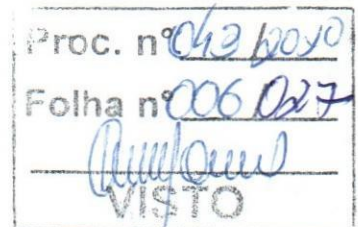 Proc. nº 043/2010
Folha nº 006 027
VISTO